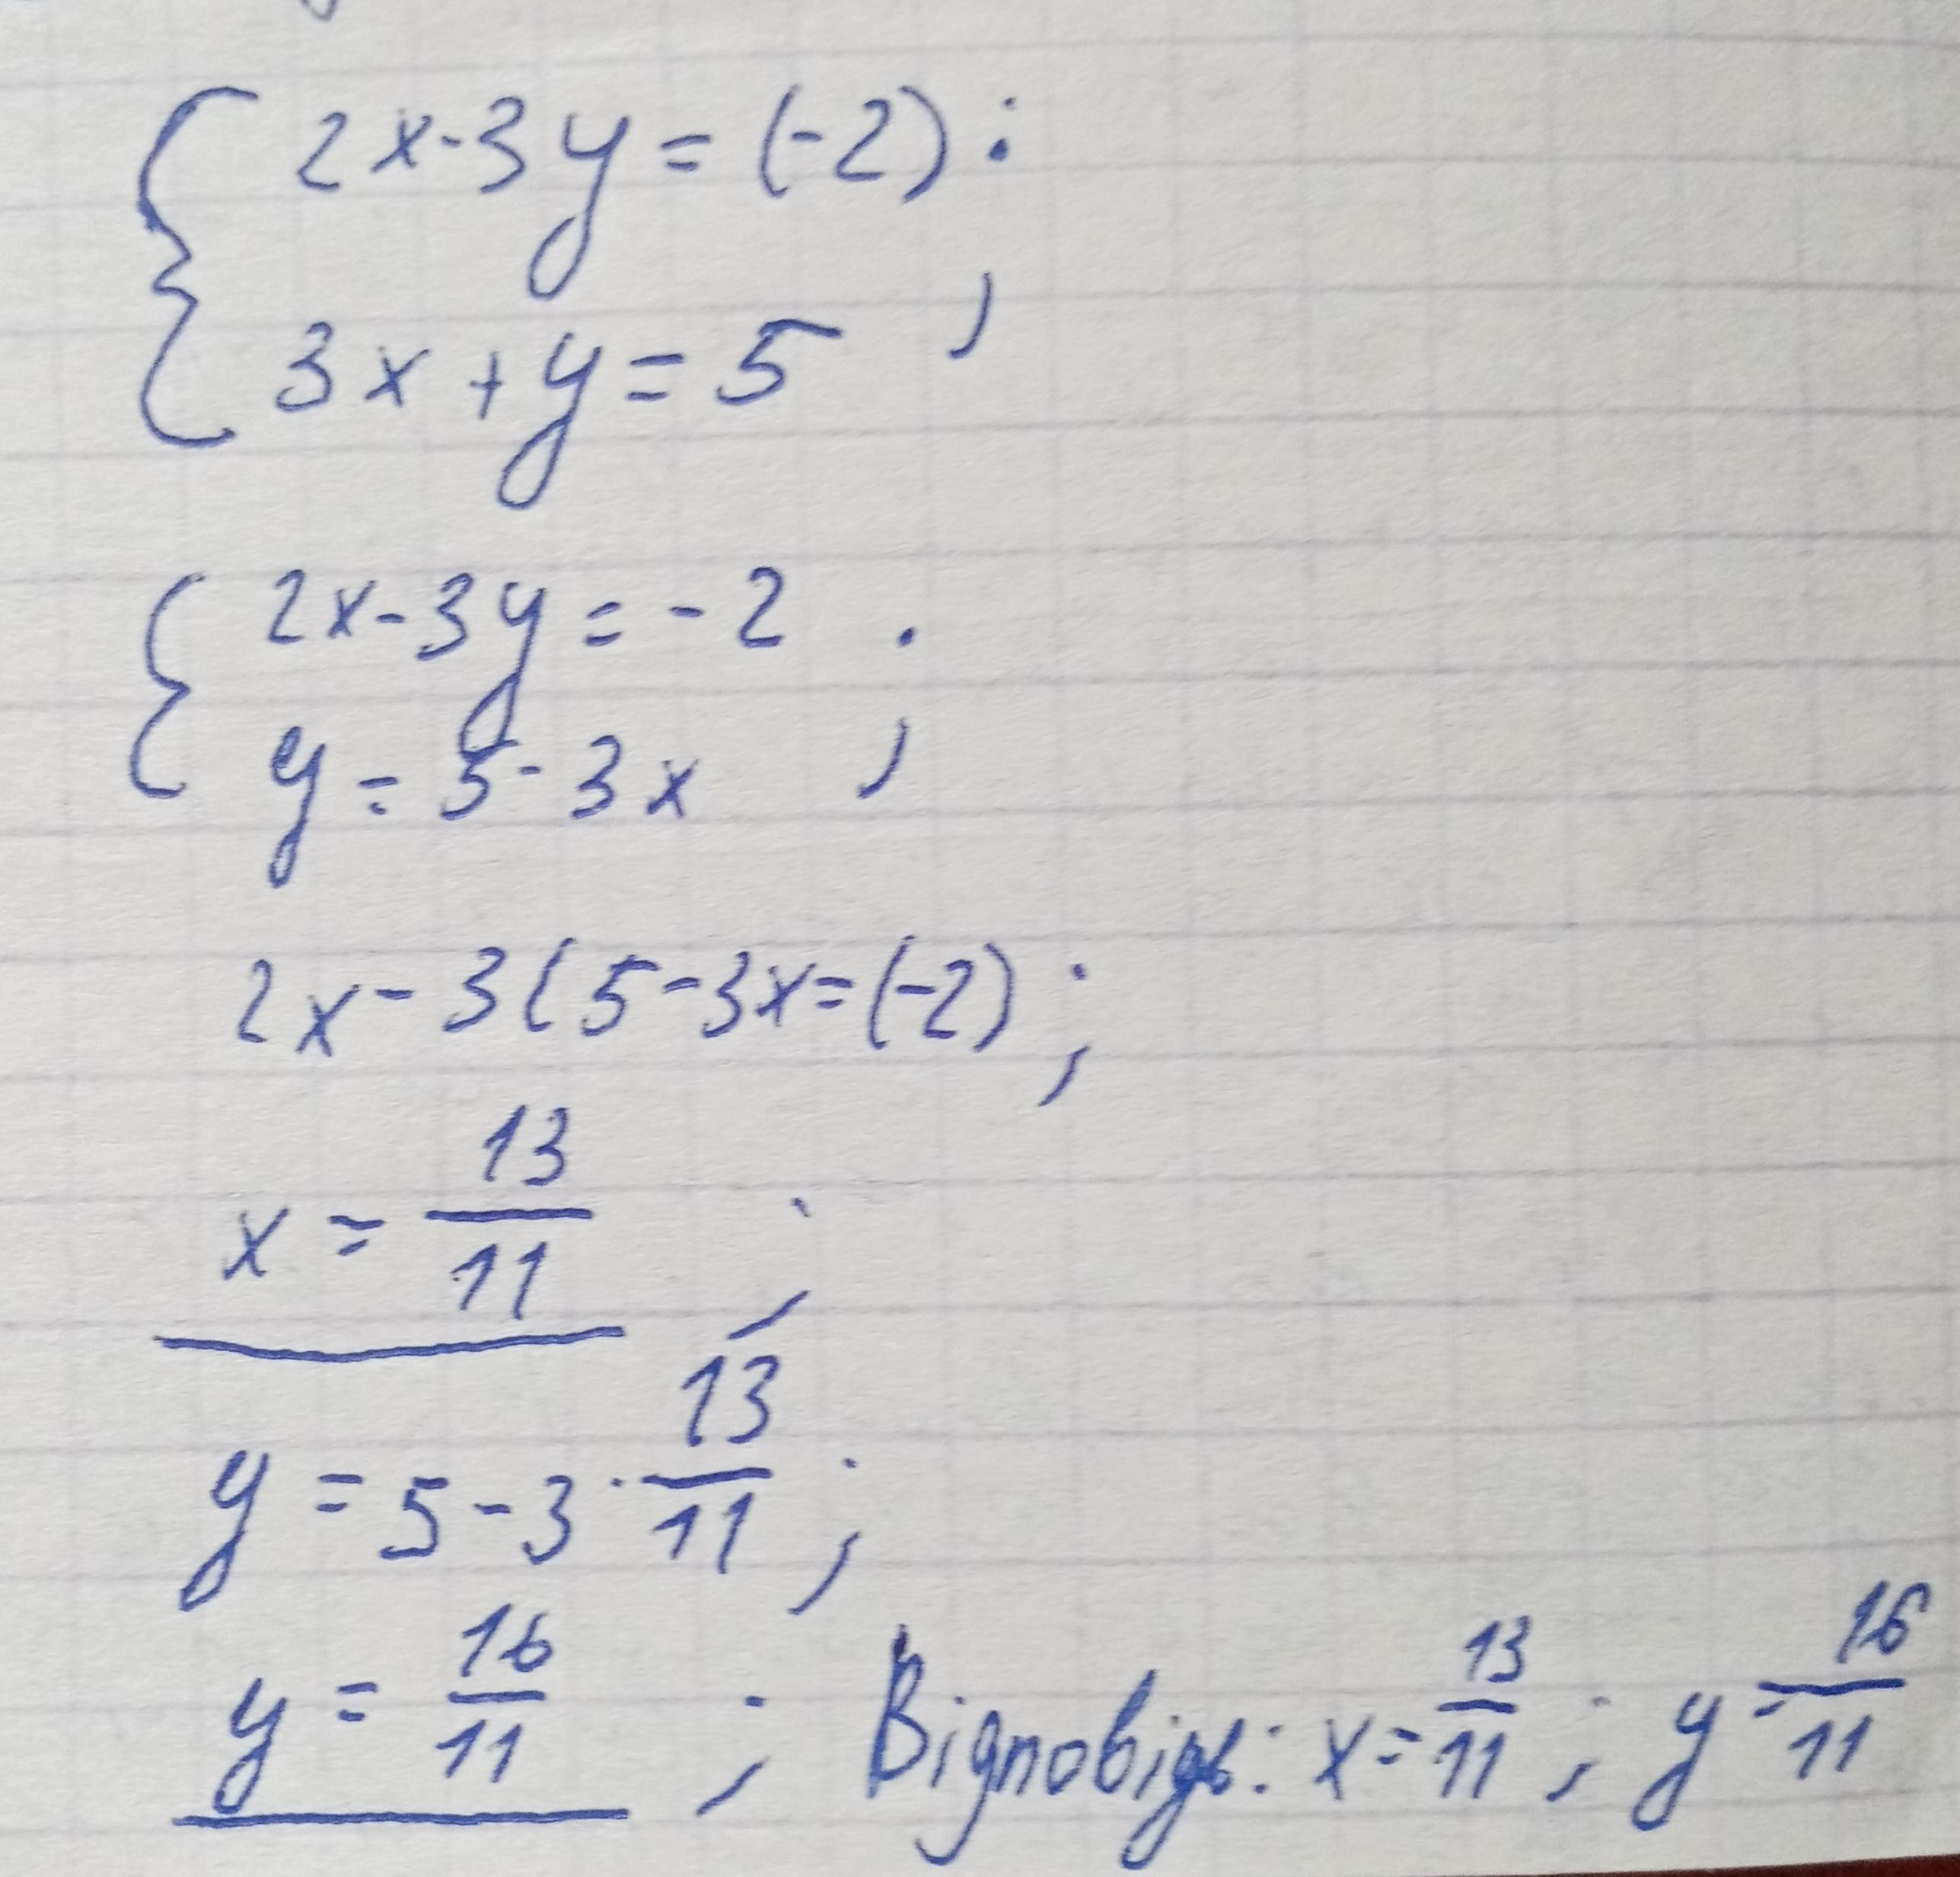 { 2x-3y=(-2) ;
3x+y=5
{ 2x-3y=-2 ;
y=5-3x
2x-3(5-3x=(-2);
x=13/11 ;
y=5-3·13/11;
y=16/11 ; Відповідь: x=13/11; y=16/11